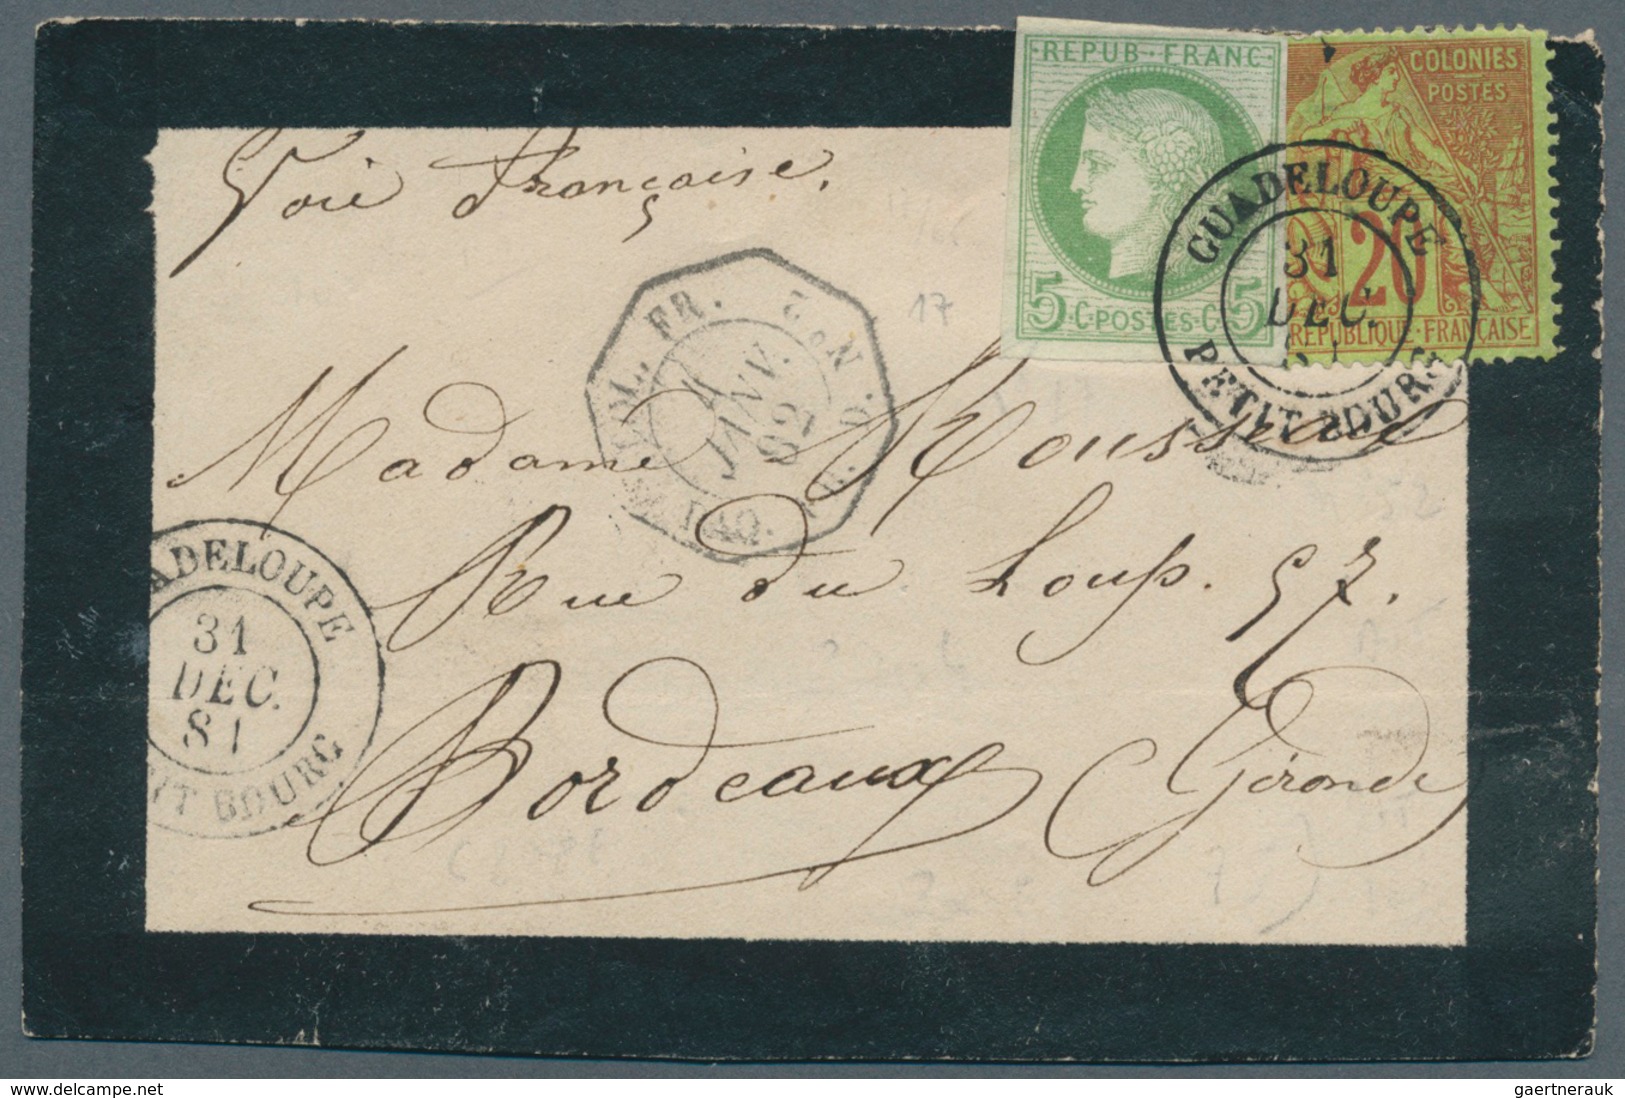 REPUB · FRANC
5 · C · POSTES · C · 5
COLONIES
POSTES
20
RÉPUBLIQUE FRANÇAISE
GUADELOUPE
31
DEC.
PETIT BOURG
Voie Française,
COL. FR.
PAQ. FR.
4
JANV.
82
17
Madame Rousseau
Rue du Loup. 57.
Bordeaux Gironde
ADELOUPE
31
DEC.
81
IT BOURG
www.delcampe.net
gaertnerauk